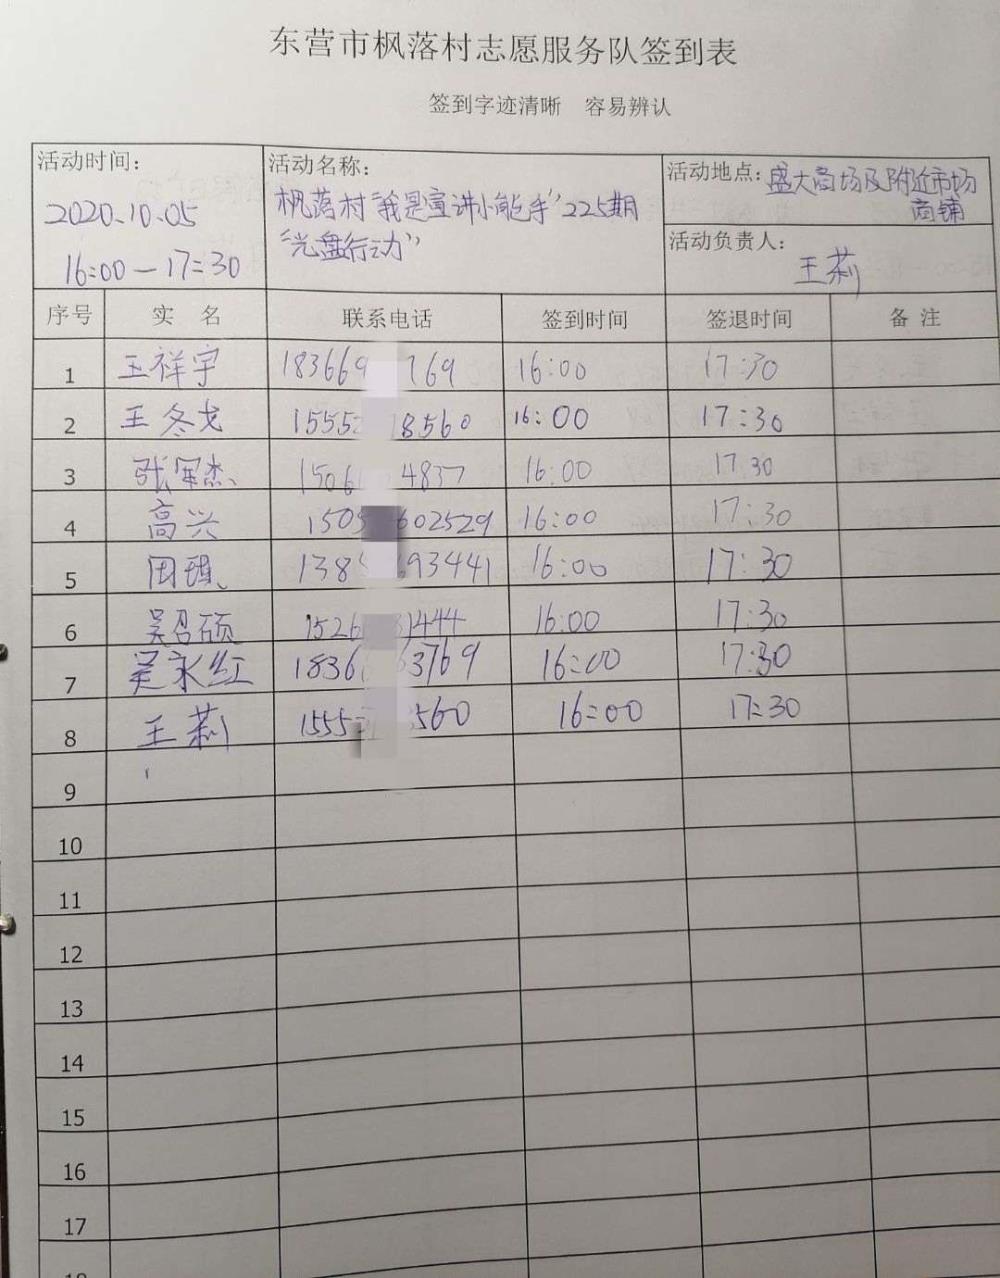 东营市枫落村志愿服务队签到表
签到字迹清晰 容易辨认
活动时间:
2020.10.05
16:00—17:30
活动名称:
枫落村“我是宣讲小能手”225期
“光盘行动”
活动地点: 盛大商场及附近市场
商铺
活动负责人:
王莉
序号 实名 联系电话 签到时间 签退时间 备注
1 王祥宇 183669 769 16:00 17:30
2 王冬戈 1555 8560 16:00 17:30
3 张军杰 1506 4837 16:00 17:30
4 高兴 1505 602529 16:00 17:30
5 田 138 693441 16:00 17:30
6 吴召硕 1526 1444 16:00 17:30
7 吴永红 1836 63769 16:00 17:30
8 王莉 1555 560 16:00 17:30
9
10
11
12
13
14
15
16
17